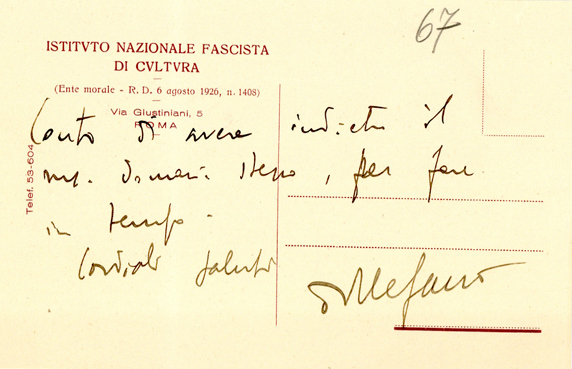 67
ISTITVTO NAZIONALE FASCISTA
DI CVLTVRA
(Ente morale - R. D. 6 agosto 1926, n. 1408)
Via Giustiniani, 5
ROMA
Telef. 53-604
Conto di avere indietro il
ms. domani stesso, per fare
in tempo.
Cordiali saluti